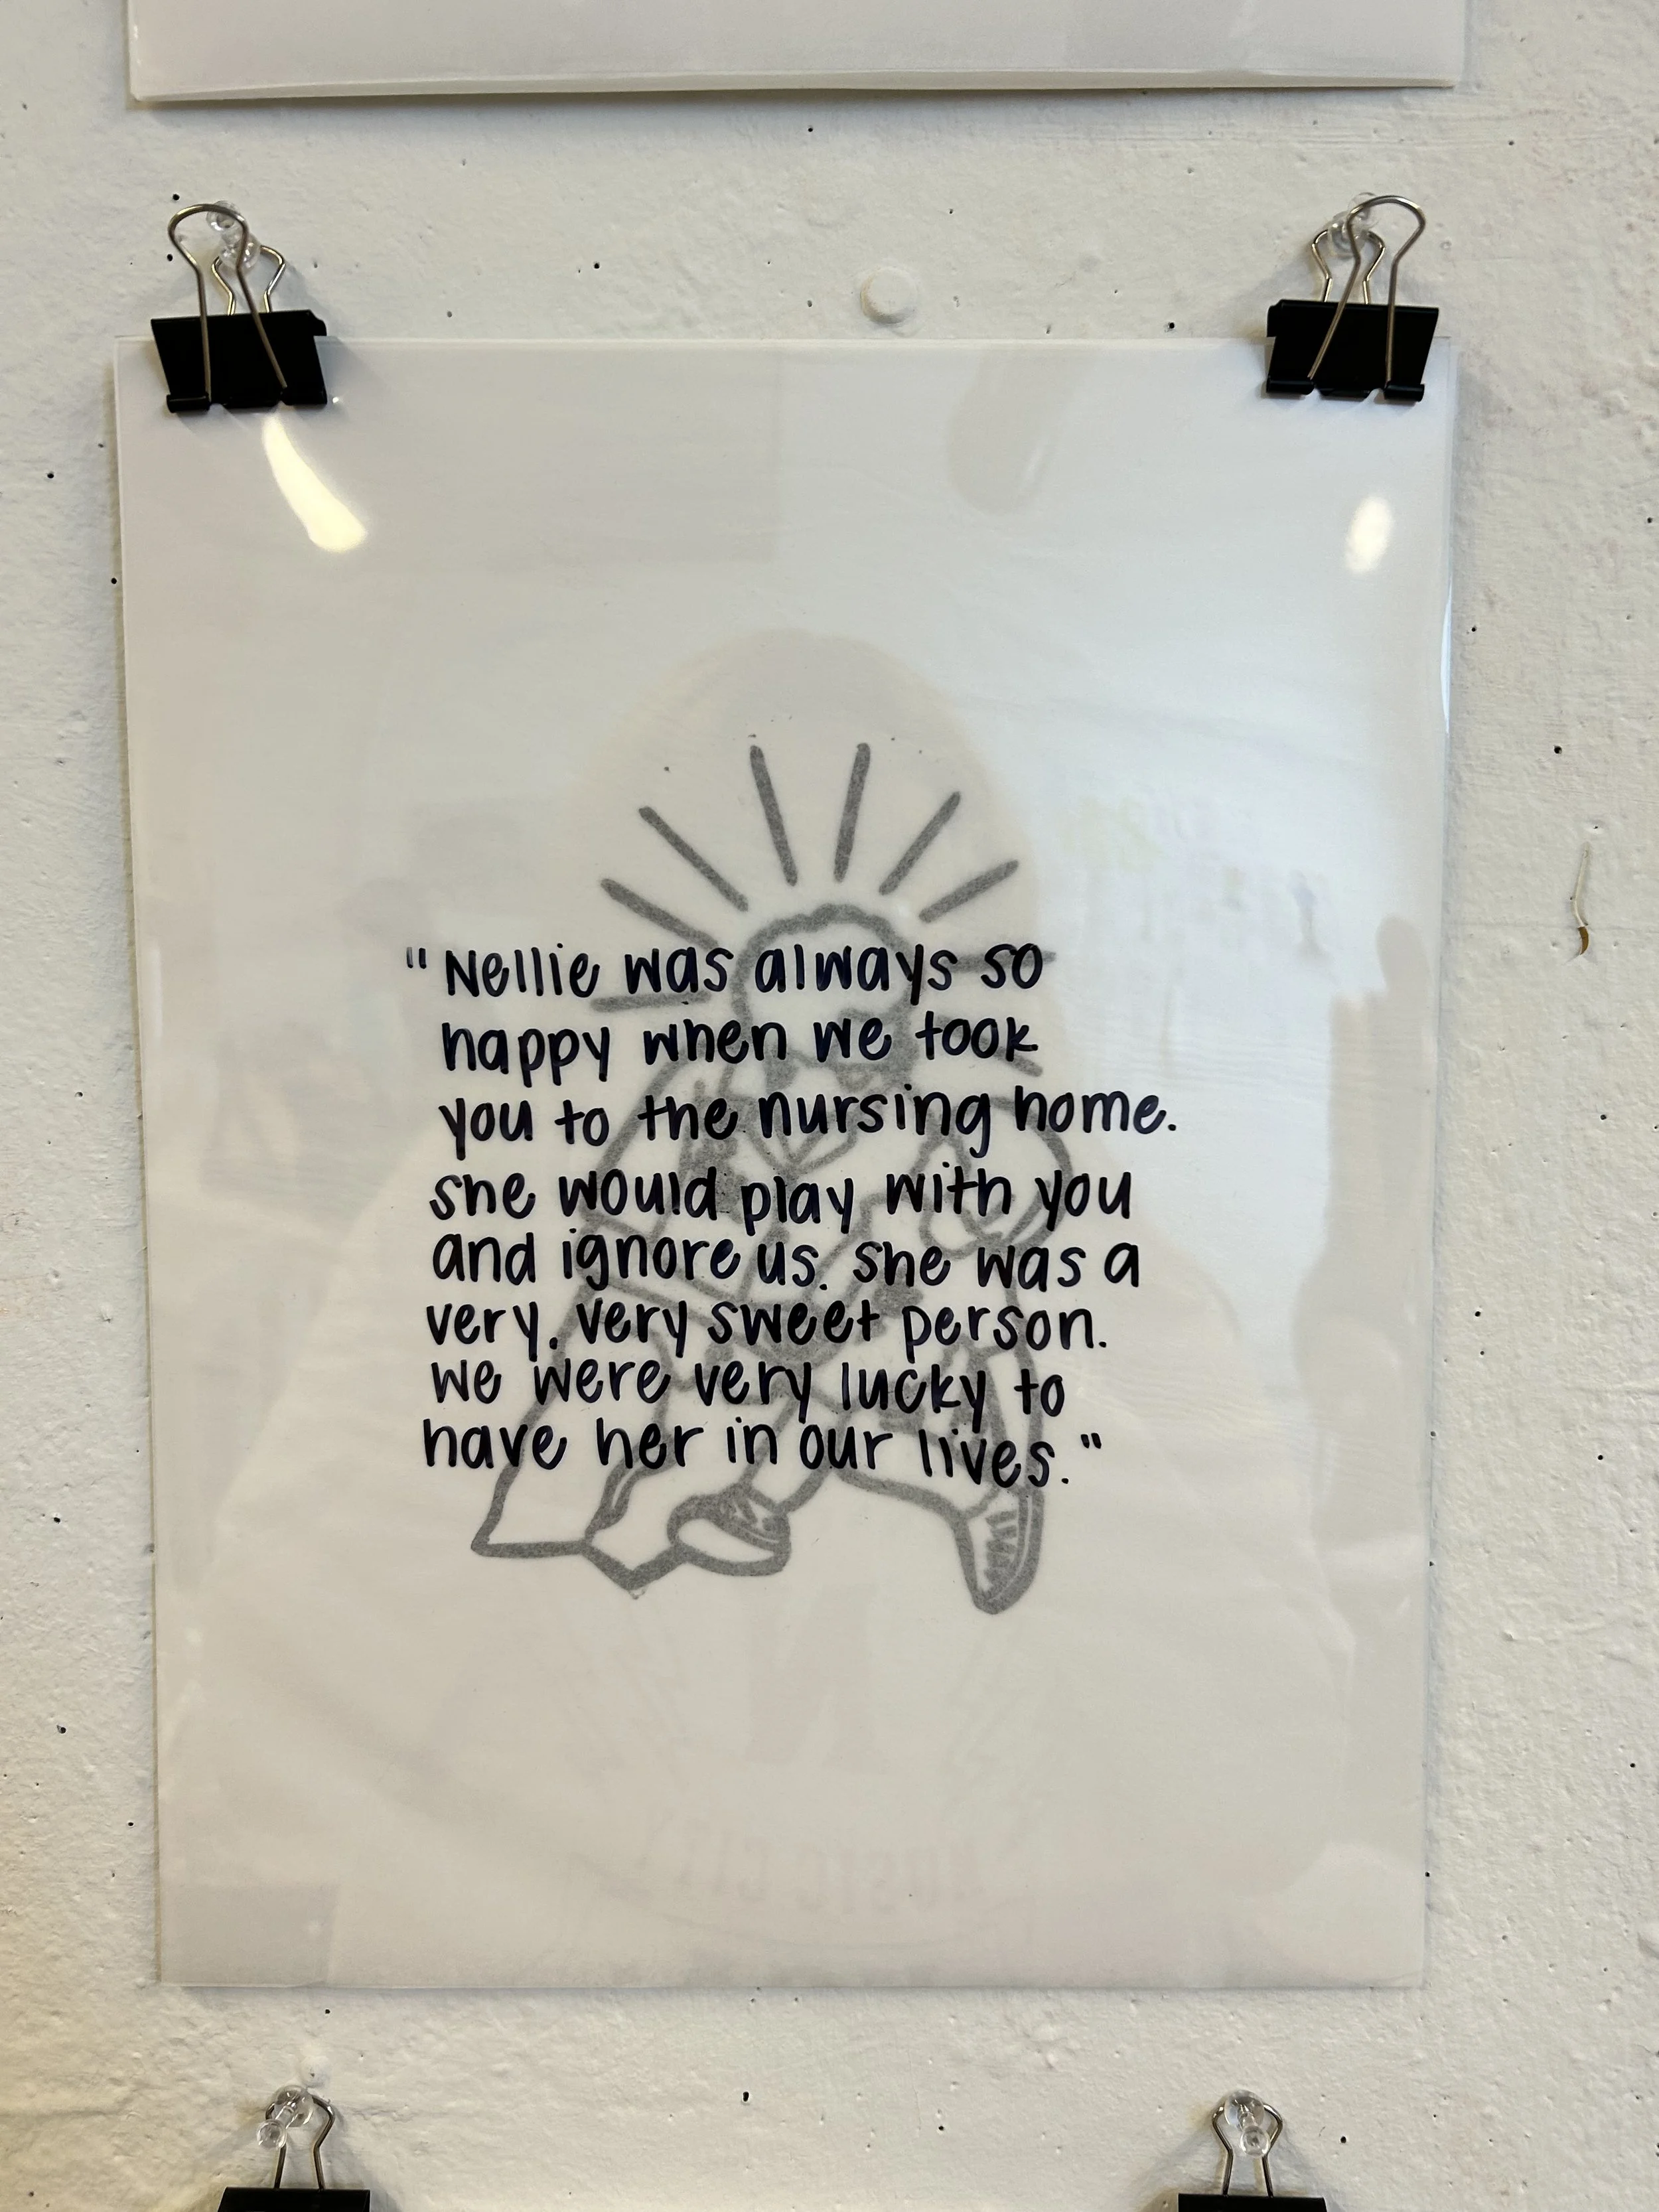 "Nellie was always so
happy when we took
you to the nursing home.
she would play with you
and ignore us. she was a
very, very sweet person.
we were very lucky to
have her in our lives."